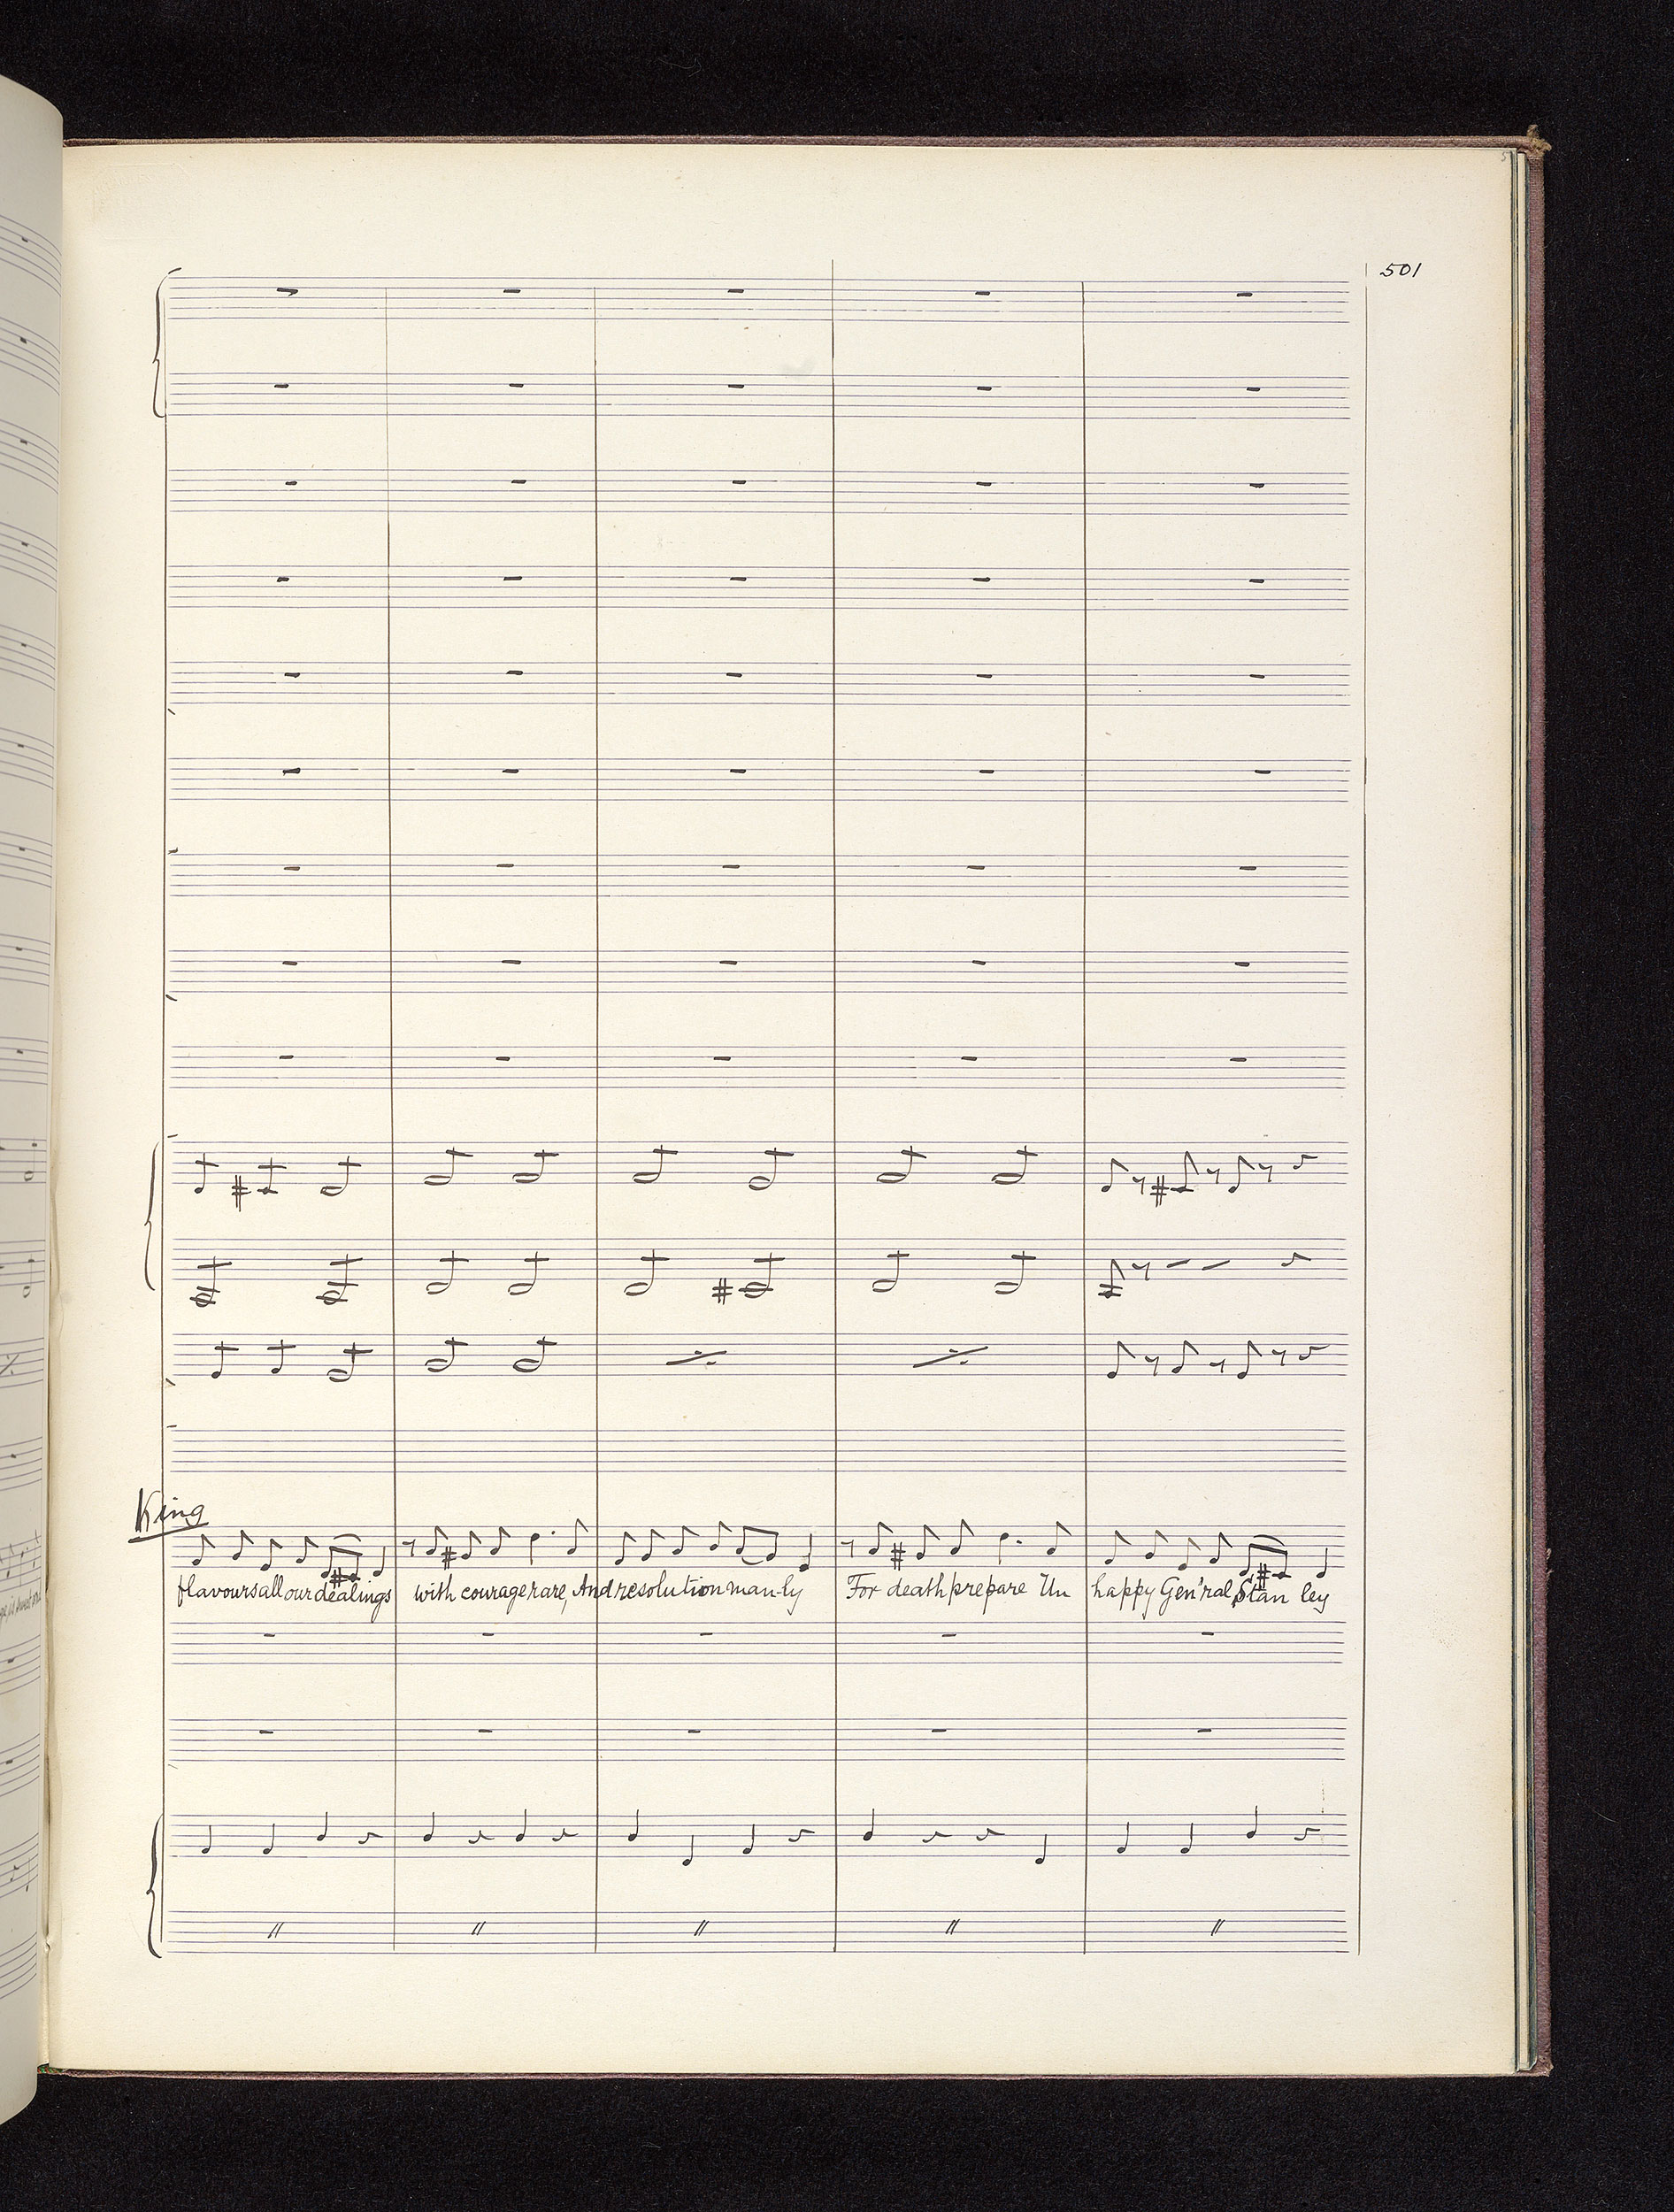 501
King
flavours all our dealings with courage rare, And resolution man-ly For death prepare Un happy Gen'ral Stan ley